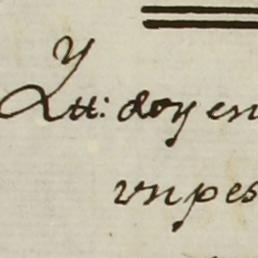 y
Qtt: doy en
vn pes